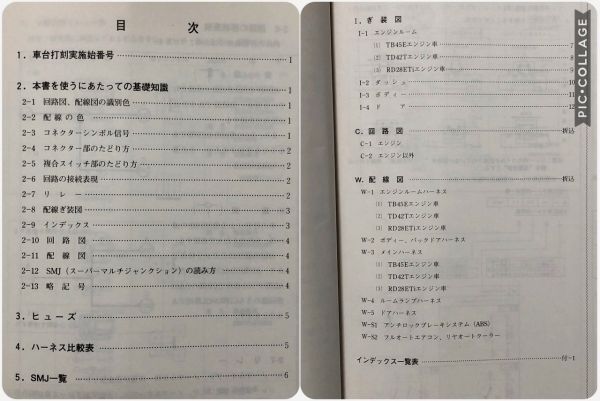 目次
1．車台打刻実施始番号 1
2．本書を使うにあたっての基礎知識 1
2-1 回路図、配線図の識別色 1
2-2 配線の色 1
2-3 コネクターシンボル信号 1
2-4 コネクター部のたどり方 2
2-5 複合スイッチ部のたどり方 2
2-6 回路の接続表現 2
2-7 リレー 2
2-8 配線ぎ装図 3
2-9 インデックス 3
2-10 回路図 4
2-11 配線図 4
2-12 SMJ（スーパーマルチジャンクション）の読み方 4
2-13 略記号 4
3．ヒューズ 5
4．ハーネス比較表 5
5．SMJ一覧 6
I．ぎ装図
I-1 エンジンルーム
(1) TB45Eエンジン車 7
(2) TD42Tエンジン車 8
(3) RD28ETiエンジン車 9
I-2 ダッシュ
I-3 ボディー 11
I-4 ドア 12
C．回路図 折込
C-1 エンジン
C-2 エンジン以外
W．配線図 折込
W-1 エンジンルームハーネス
(1) TB45Eエンジン車
(2) TD42Tエンジン車
(3) RD28ETiエンジン車
W-2 ボディー、バックドアハーネス
W-3 メインハーネス
(1) TB45Eエンジン車
(2) TD42Tエンジン車
(3) RD28ETiエンジン車
W-4 ルームランプハーネス
W-5 ドアハーネス
W-S1 アンチロックブレーキシステム（ABS）
W-S2 フルオートエアコン、リヤオートクーラー
インデックス一覧表 付-1
PIC・COLLAGE